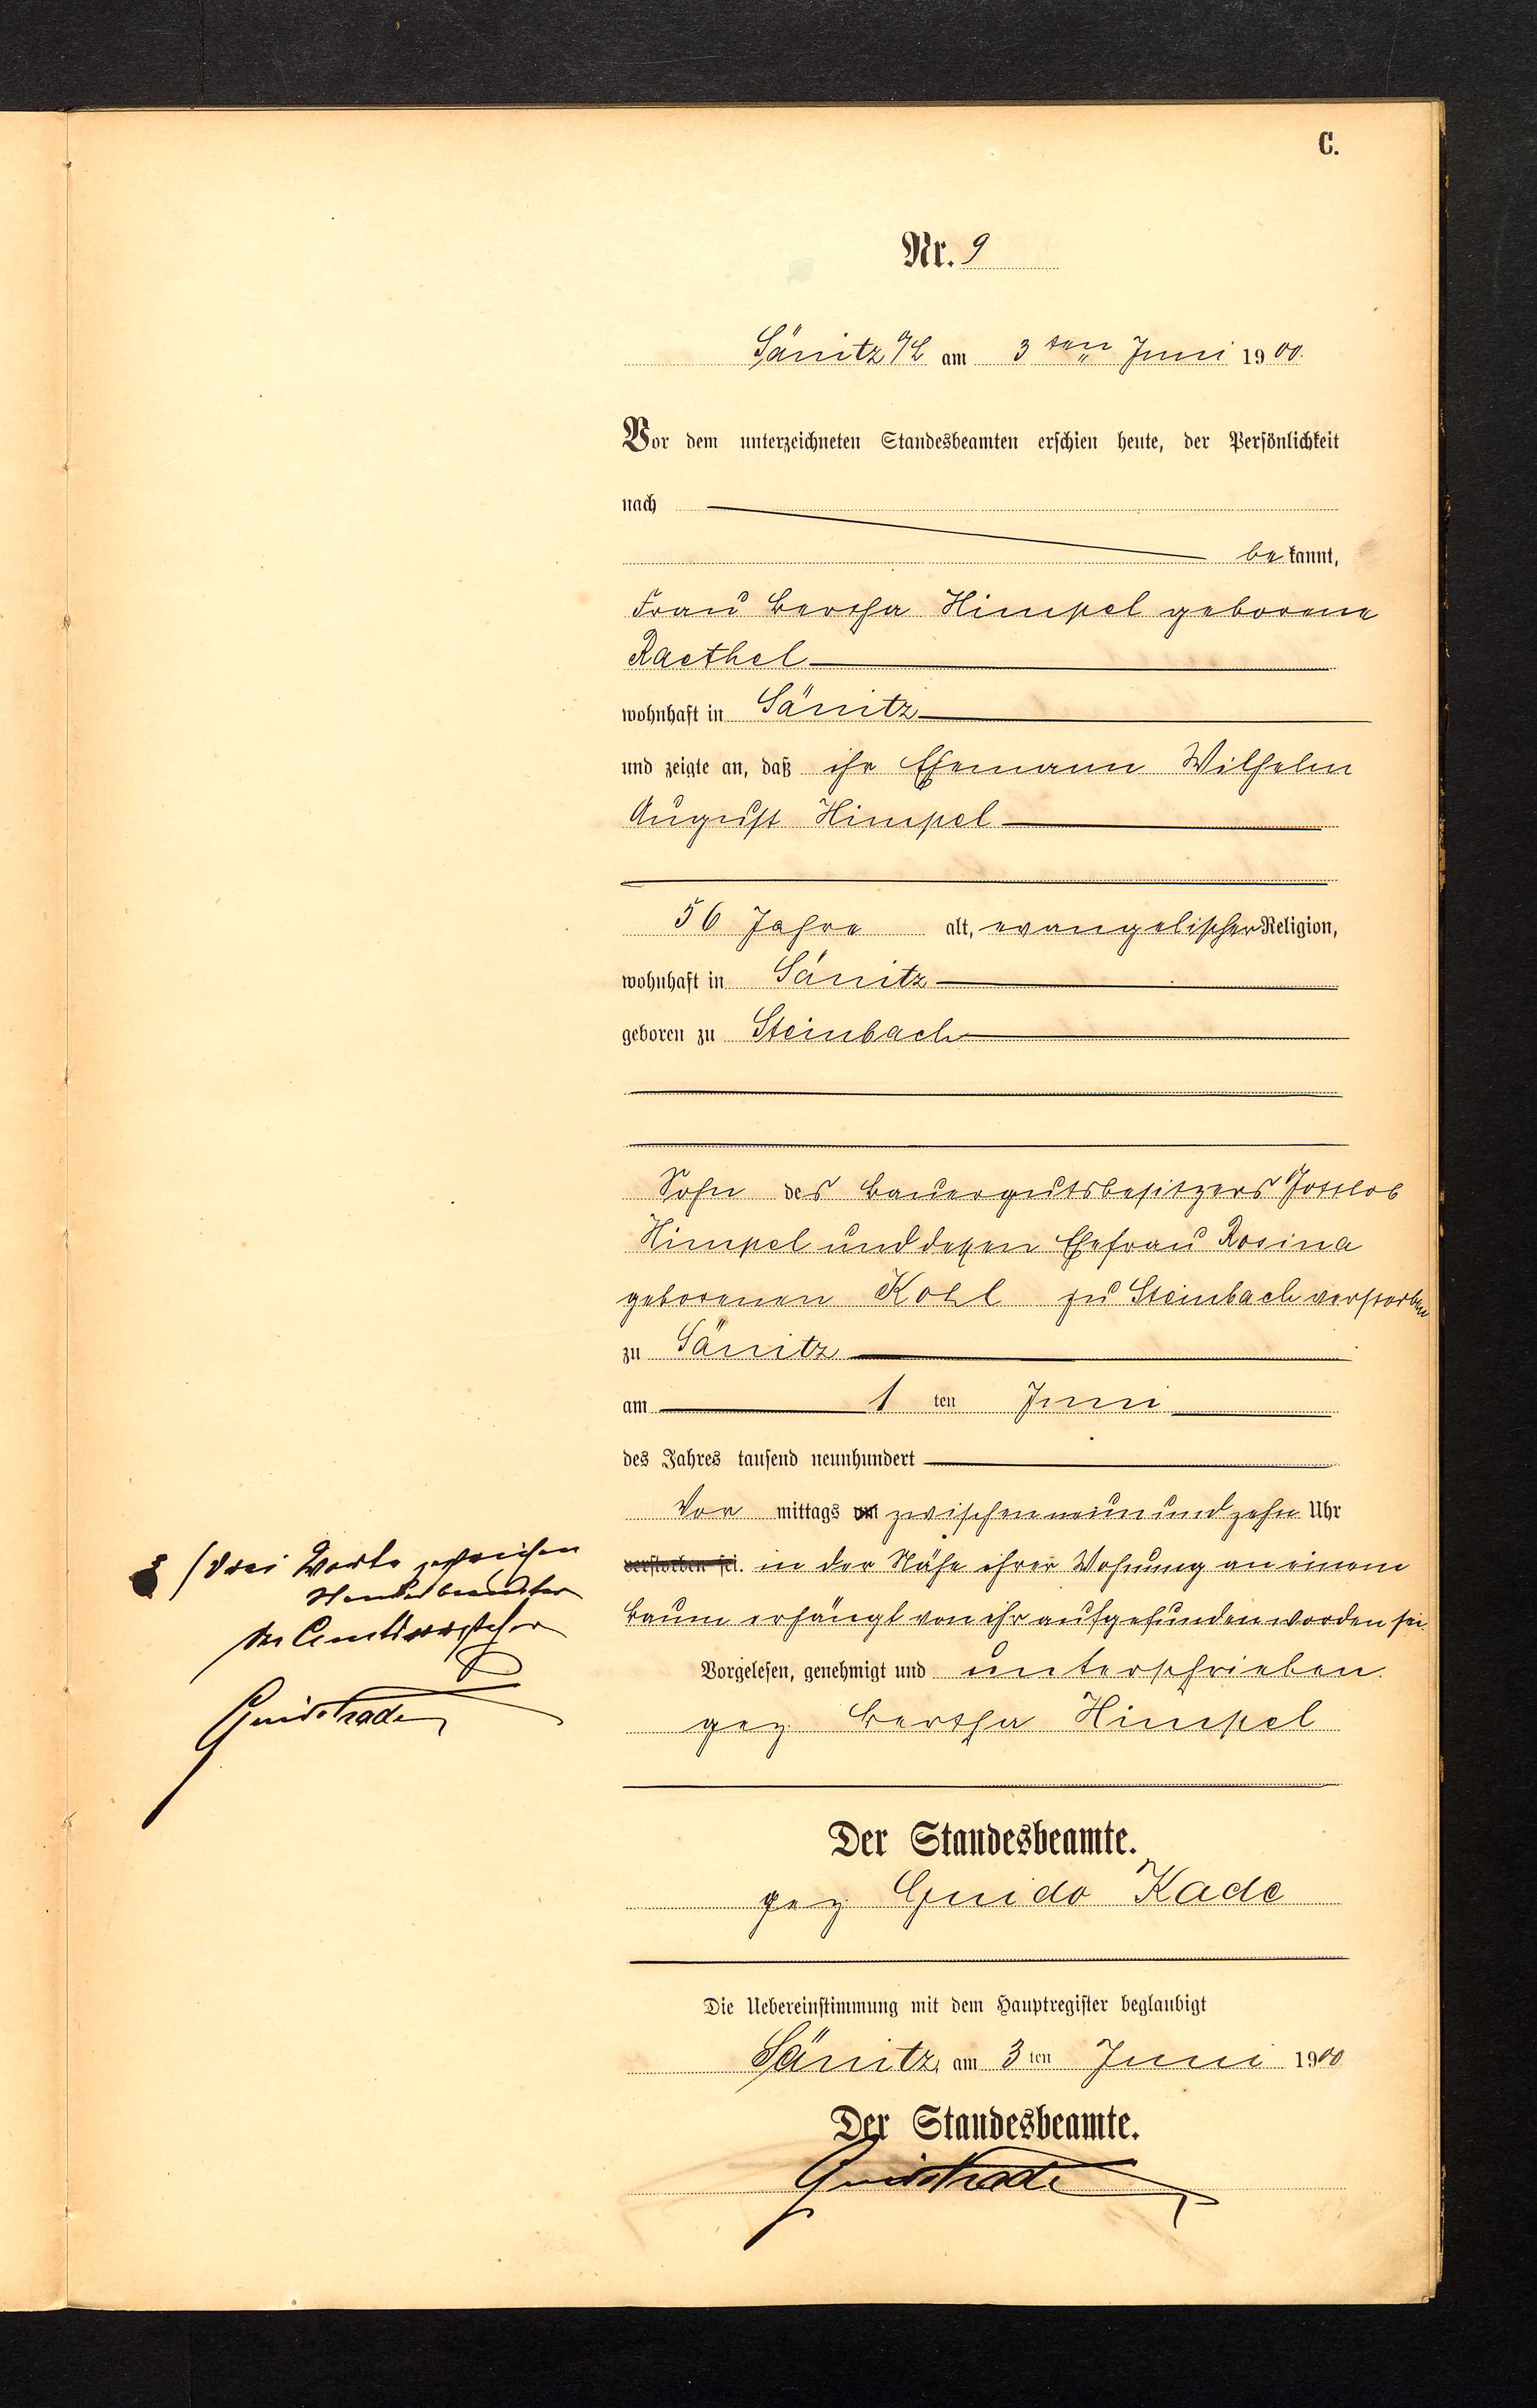 C.
Nr. 9
Sänitz O/L am 3 ten Juni 1900.
Vor dem unterzeichneten Standesbeamten erschien heute, der Persönlichkeit
nach
bekannt,
Frau Bertha Himpel geborene
Raethel
wohnhaft in Sänitz
und zeigte an, daß ihr Ehemann Wilhelm
August Himpel
56 Jahre alt, evangelischer Religion,
wohnhaft in Sänitz
geboren zu Steinbach
Sohn des Bauergutsbesitzers Gottlob
Himpel und dessen Ehefrau Rosina
geborenen Kohl zu Steinbach verstorben
zu Sänitz
am 1 ten Juni
des Jahres tausend neunhundert
Vor mittags um zwischen neun und zehn Uhr
verstorben sei. in der Nähe ihrer Wohnung an einem
Baum erhängt von ihr aufgefunden worden sei.
Vorgelesen, genehmigt und unterschrieben.
gez. Bertha Himpel
drei Worte gestrichen
Standesbeamter
der Amtsvorsteher
Guido Kade
Der Standesbeamte.
gez. Guido Kade
Die Uebereinstimmung mit dem Hauptregister beglaubigt
Sänitz, am 3 ten Juni 1900
Der Standesbeamte.
Guido Kade